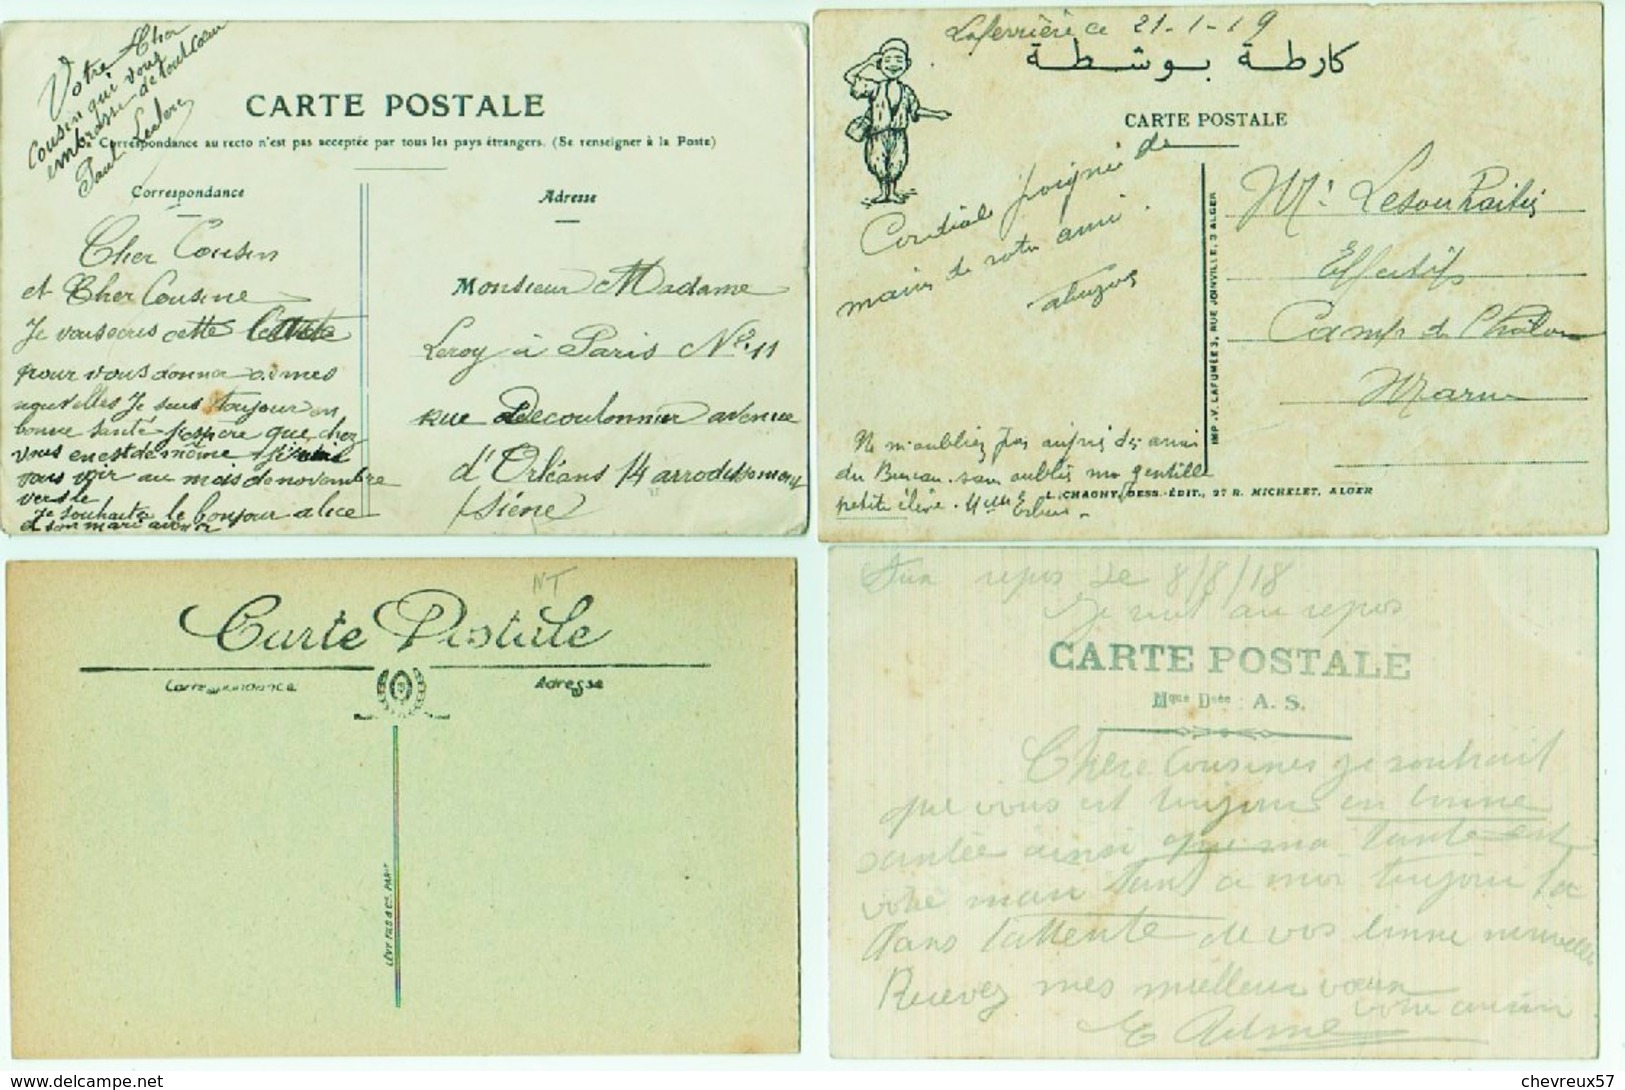 Votre Cher
Cousin qui vous
embrasse de tout coeur
Paul Leclerc
CARTE POSTALE
Correspondance au recto n'est pas acceptée par tous les pays étrangers. (Se renseigner à la Poste)
Correspondance
Adresse
Cher Cousin
et Cher Cousine
Je vous ecris cette
pour vous donner de mes
nouvelles Je suis toujour en
bonne santé J'espère que chez
vous en est de même
vous voir au mois de novembre
vers le
Je souhaite le bonjour alice
et son mari
Monsieur Madame
Leroy à Paris No. 11
rue Decoulonnier avenue
d'Orléans 14 arrodissement
Siéne
Laferrière ce 21-1-19
كارطة بوسطة
CARTE POSTALE
Cordiale poignée de
main de votre ami
Mr Lesouhaitier
Effectifs
Camp de Châlons
Marne
IMP. V. LAFUMÉE 3, RUE JOINVILLE, 3 ALGER
Ne m'oubliez pas auprès des amis
du Bureau. sans oublier ma gentille
petite élève. Melle
L. CHAGNY, DESS. ÉDIT., 27 R. MICHELET, ALGER
NT
Carte Postale
Correspondance
Adresse
LÉVY FILS & Cie, PARIS
Aux repos Le 8/8/18
Je suit au repos
CARTE POSTALE
Mque Dsée : A. S.
Chere Cousines je souhait
que vous est toujours en bonne
santée ainsi que ma tante est
votre mari tant a moi toujour
Dans l'attente de vos bonne nouvelle
Recevez mes meilleur voeux
votre cousin
chevreux57